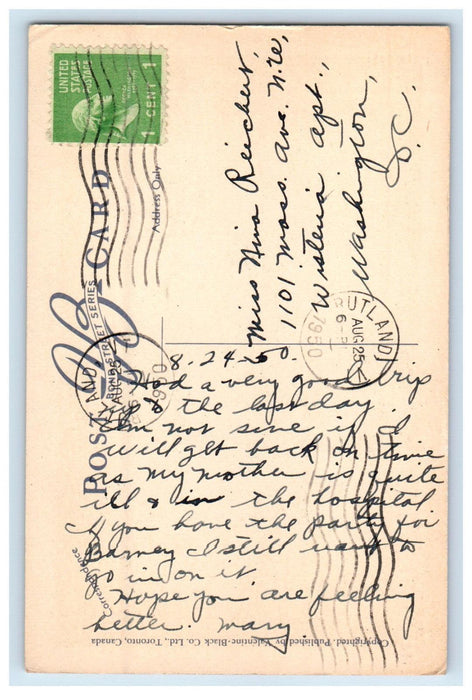 UNITED
STATES
POSTAGE
1 CENT 1
POST CARD
BOND STREET SERIES
Address Only
Correspondence
Miss Nina Reichert
1101 Mass. Ave. N.W.,
Wisteria Apt.,
Washington,
D.C.
RUTLAND
AUG 25
6 PM
1950
8-24-50
Had a very good trip
up & the last day.
Am not sine if I
will get back on time
as my mother is quite
ill & in the hospital
If you have the party for
Barney I still want to
go in on it
Hope you are feeling
better. Mary
Copyrighted. Published by Valentine-Black Co. Ltd., Toronto, Canada